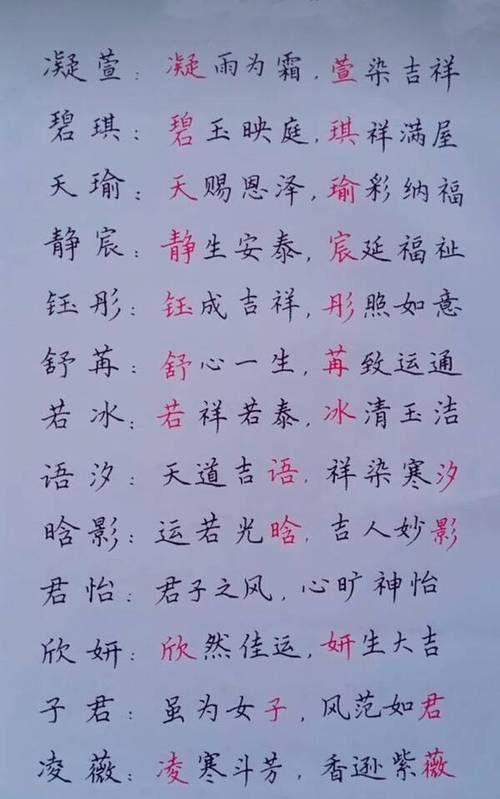 凝萱：凝雨为霜，萱染吉祥
碧琪：碧玉映庭，琪祥满屋
天瑜：天赐恩泽，瑜彩纳福
静宸：静生安泰，宸延福祉
钰彤：钰成吉祥，彤照如意
舒苒：舒心一生，苒致运通
若冰：若祥若泰，冰清玉洁
语汐：天道吉语，祥染寒汐
晗影：运若光晗，吉人妙影
君怡：君子之风，心旷神怡
欣妍：欣然佳运，妍生大吉
子君：虽为女子，风范如君
凌薇：凌寒斗芳，香逊紫薇